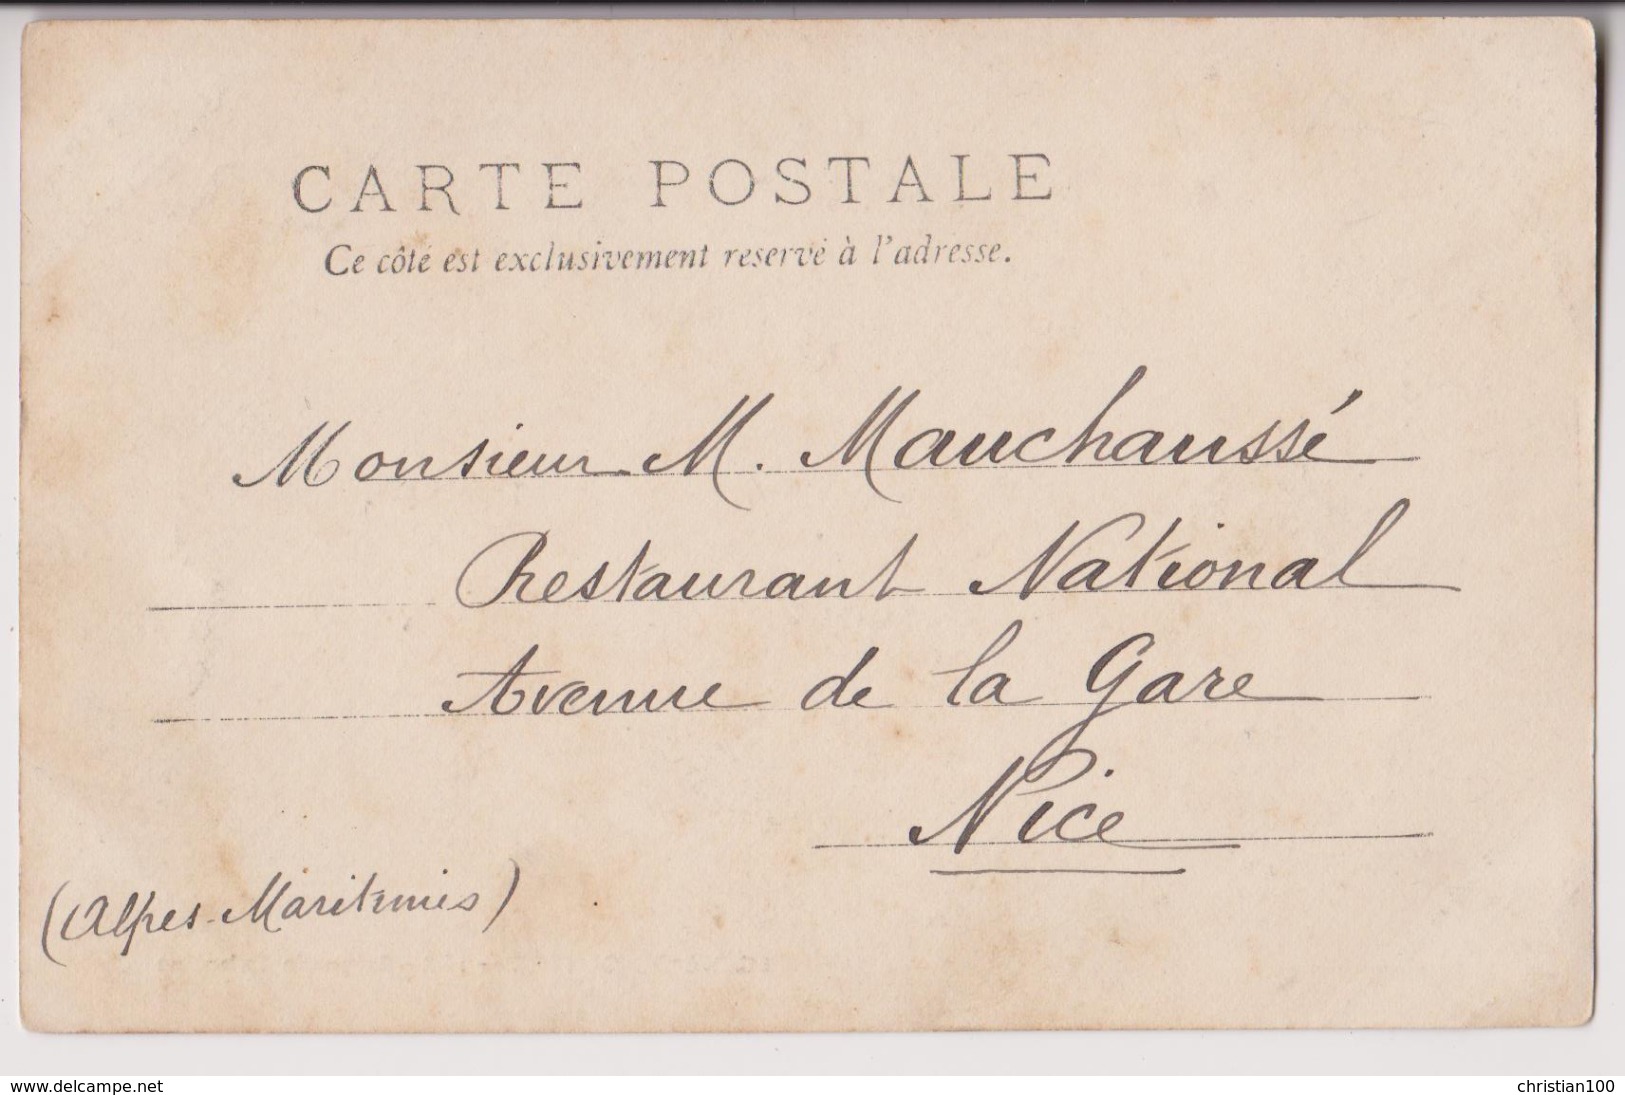 CARTE POSTALE
Ce côté est exclusivement reservé à l'adresse.
Monsieur M. Mauchaussé
Restaurant National
Avenue de la Gare
Nice
(Alpes-Maritimes)
www.delcampe.net
christian100